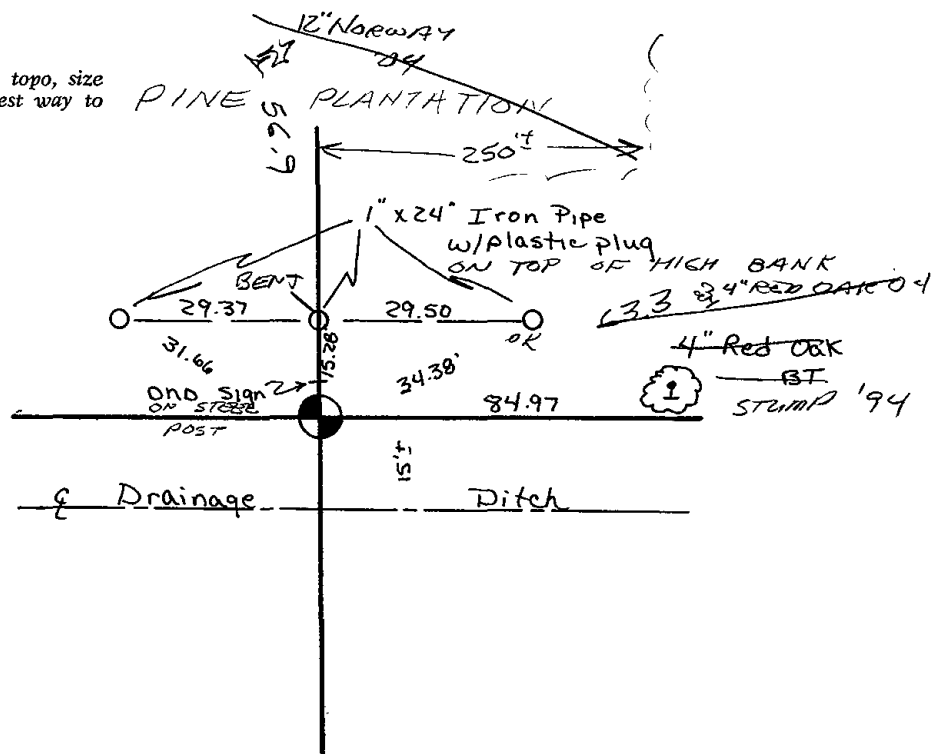 12" NORWAY
'04
topo, size
est way to
PINE PLANTATION
56.9
250'±
1" x 24" Iron Pipe
w/plastic plug
ON TOP OF HIGH BANK
BENT
29.37
29.50
OK
4" RED OAK 04
31.66
15.28'
34.38'
4" Red Oak
BT
1
STUMP '94
DND Sign
ON STEEL
POST
84.97
15'±
℄ Drainage Ditch